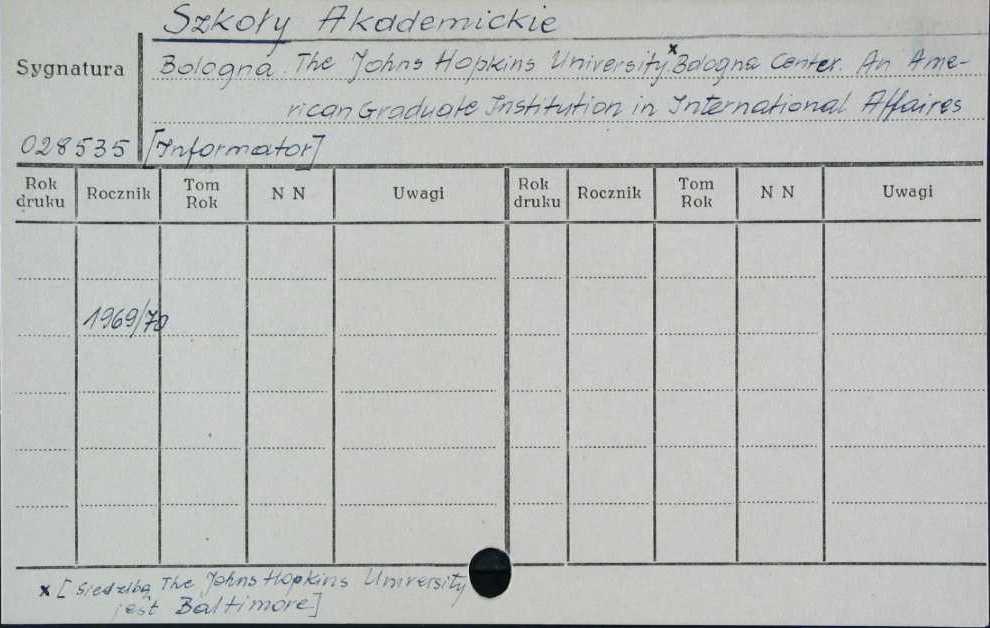 Szkoły Akademickie
Sygnatura
Bologna. The Johns Hopkins University x Bologna Center. An Ame-
rican Graduate Institution in International Affaires
028535 [Informator]
Rok druku Rocznik Tom Rok N N Uwagi Rok druku Rocznik Tom Rok N N Uwagi
1969/70
x [Siedzibą The Johns Hopkins University
jest Baltimore]